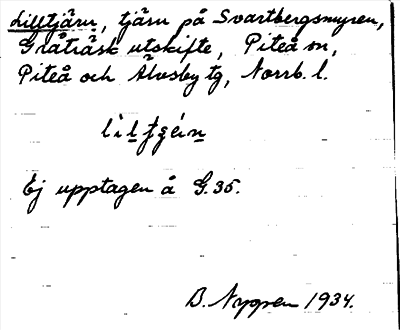 Lilltjärn, tjärn på Svartbergsmyren,
Gråträsk utskifte, Piteå sn,
Piteå och Älvsby tg, Norrb. l.
Ej upptagen å G.35.
B. Nygren 1934.